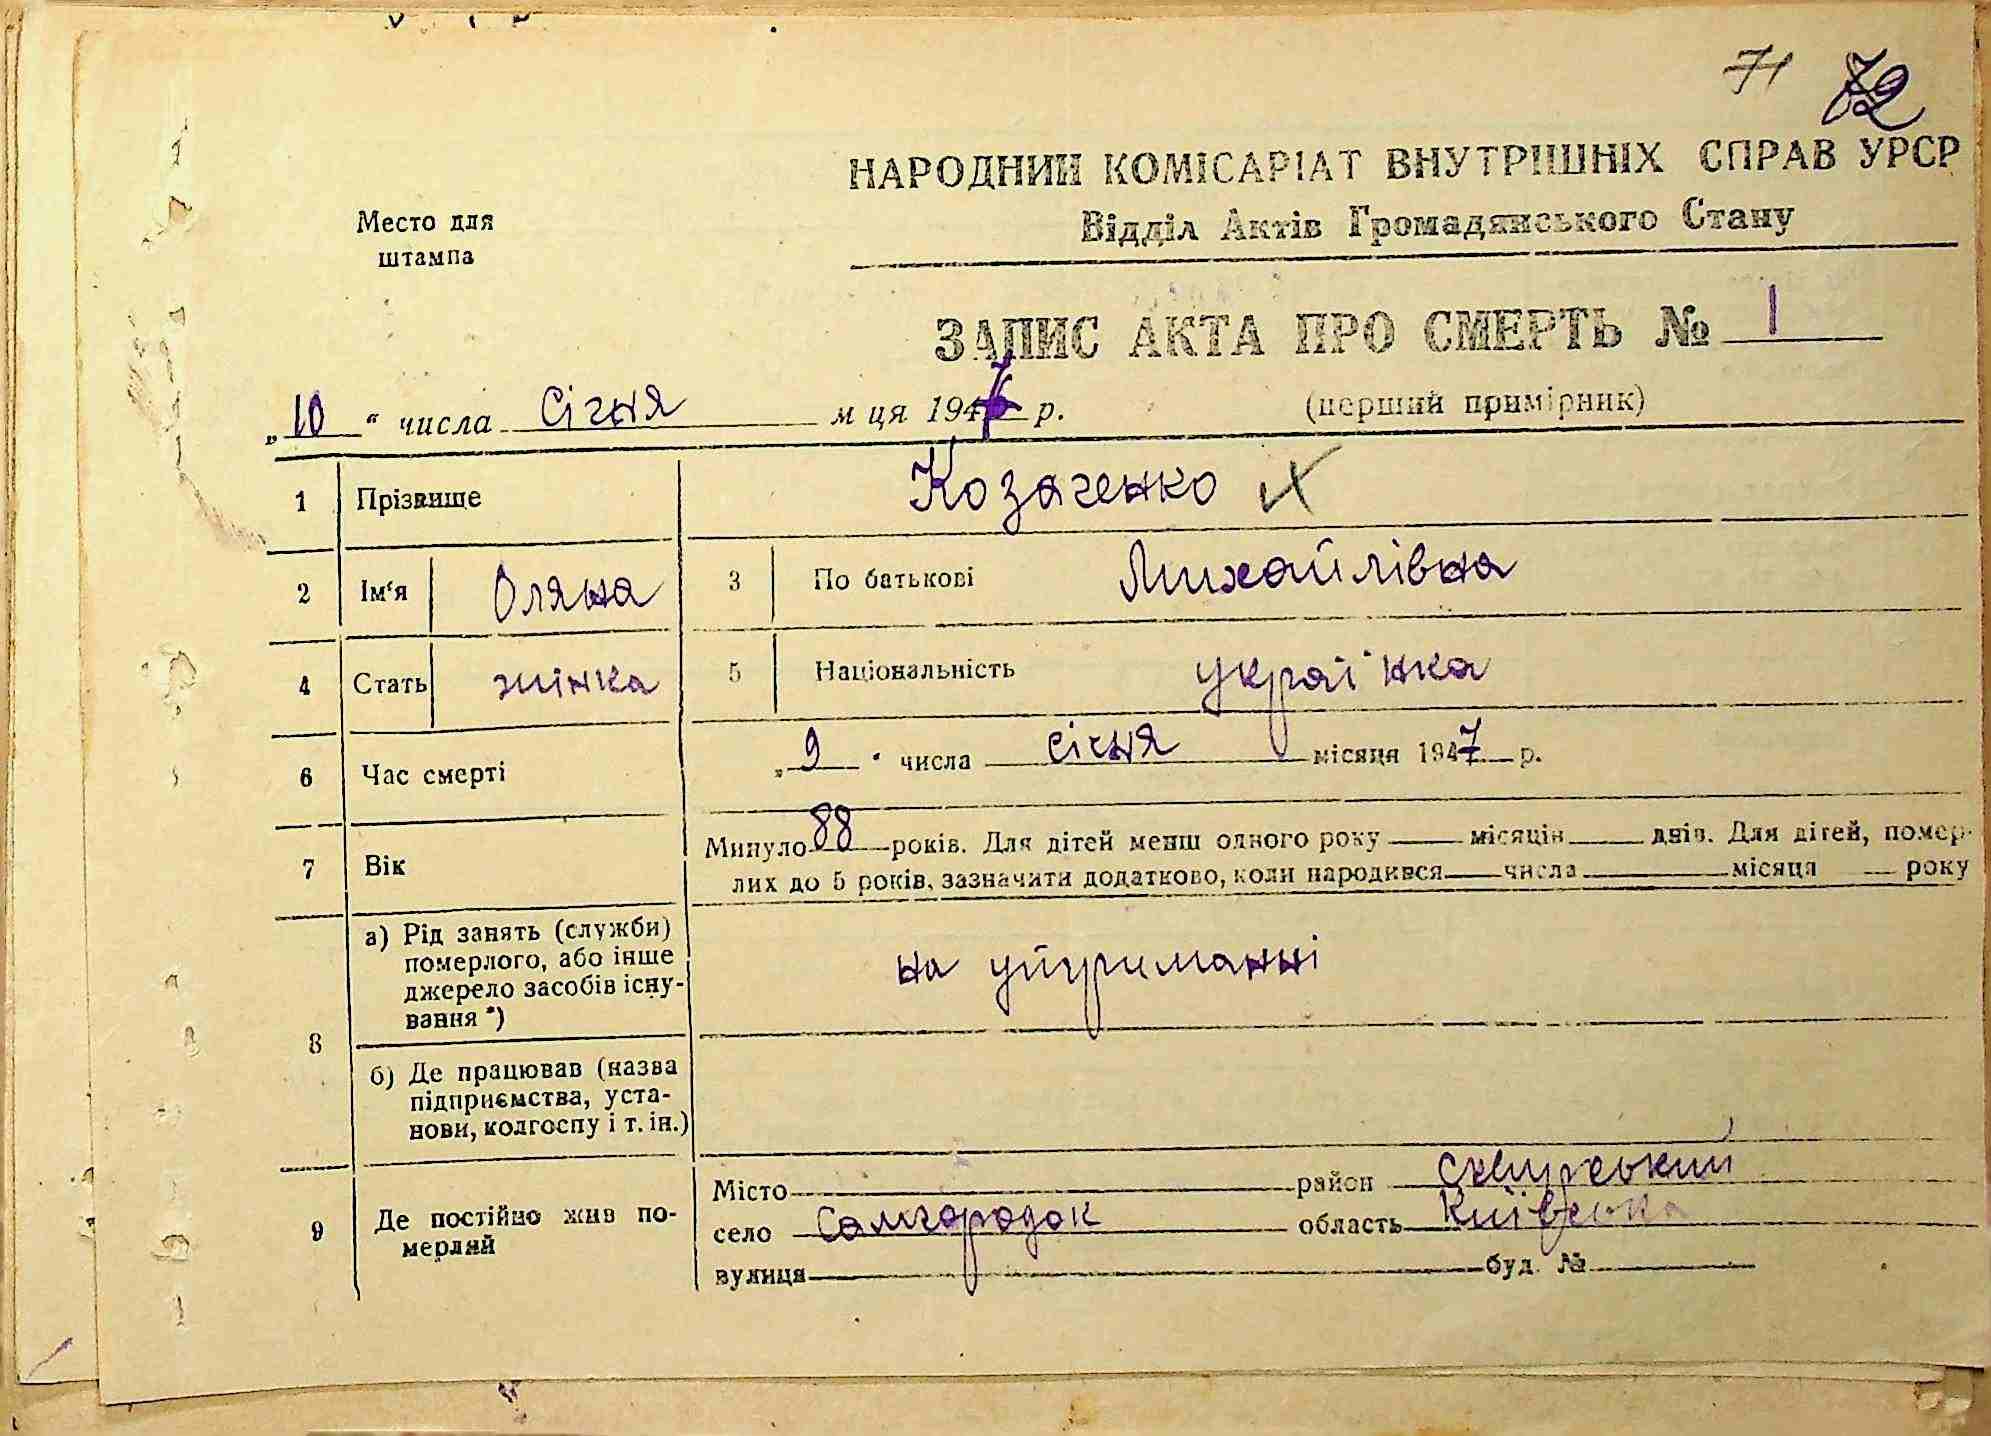 71 72
НАРОДНИЙ КОМІСАРІАТ ВНУТРІШНІХ СПРАВ УРСР
Відділ Актів Громадянського Стану
Место для
штампа
ЗАПИС АКТА ПРО СМЕРТЬ № 1
„10“ числа січня м ця 1947 р. (перший примірник)
1 Прізвище Козаченко
2 Ім‘я Оляна 3 По батькові Михайлівна
4 Стать жінка 5 Національність українка
6 Час смерті „9“ числа січня місяця 1947 р.
7 Вік Минуло 88 років. Для дітей менш одного року місяців днів. Для дітей, помер-
лих до 5 років, зазначити додатково, коли народився числа місяця року
8 а) Рід занять (служби)
померлого, або інше
джерело засобів існу-
вання *) на утриманні
б) Де працював (назва
підприємства, уста-
нови, колгоспу і т. ін.)
9 Де постійно жив по-
мерлий
Місто район Сквирський
село Самгородок область Київська
вулиця буд. №